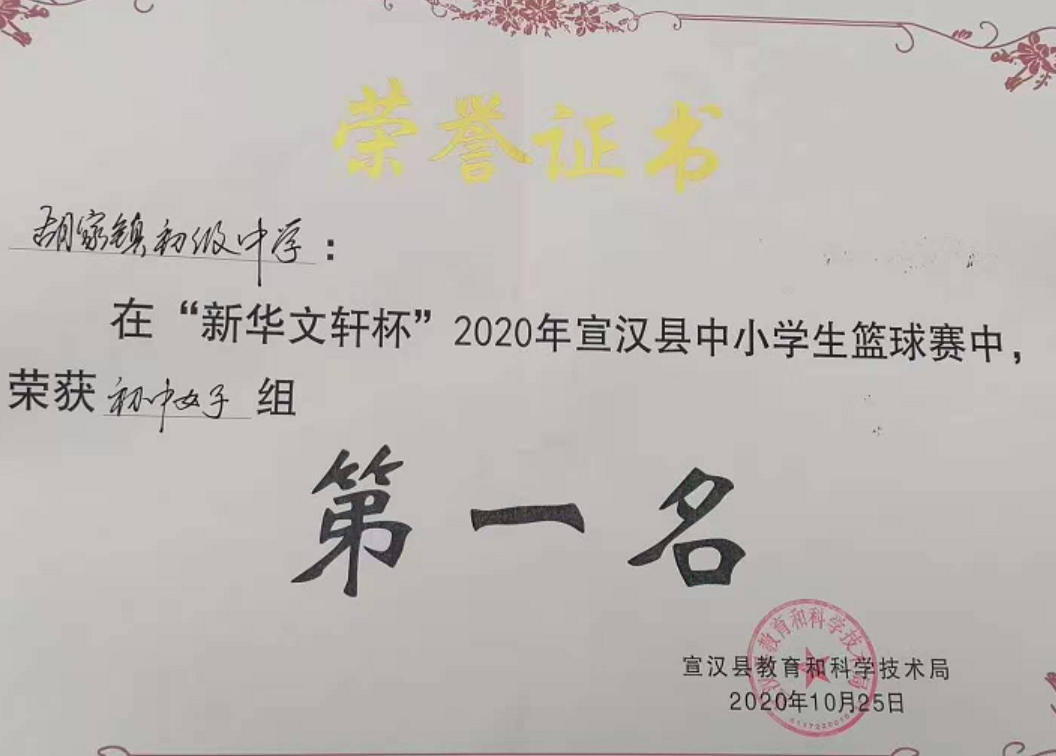 荣誉证书
胡家镇初级中学：
在“新华文轩杯”2020年宣汉县中小学生篮球赛中，
荣获初中女子组
第一名
宣汉县教育和科学技术局
2020年10月25日